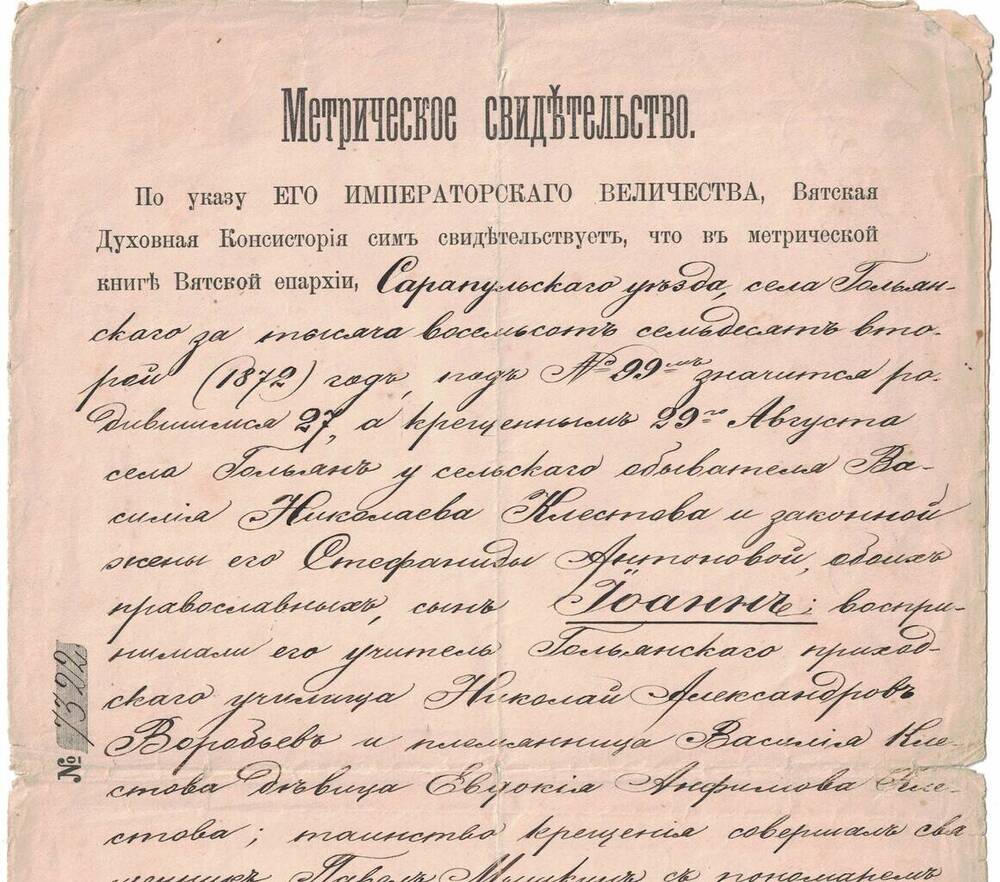 Метрическое свидѣтельство.
По указу ЕГО ИМПЕРАТОРСКАГО ВЕЛИЧЕСТВА, Вятская
Духовная Консисторія симъ свидѣтельствуетъ, что въ метрической
книгѣ Вятской епархіи, Сарапульскаго уѣзда, села Гольян-
скаго за тысяча восемьсотъ семьдесятъ вто-
рой (1872) годъ, подъ № 99мъ значится ро-
дившимся 27, а крещеннымъ 29го Августа
села Гольянъ у сельскаго обывателя Ва-
силія Николаева Клестова и законной
жены его Стефаниды Антоновой, обоихъ
православныхъ, сынъ Іоаннъ; воспри-
нимали его учитель Гольянскаго приход-
скаго училища Николай Александровъ
Воробьевъ и племянница Василія Кле-
стова дѣвица Евдокія Анфимова Кле-
стова; таинство крещенія совершалъ свя
щенникъ Павелъ Мышкинъ съ пономаремъ
№ 7322